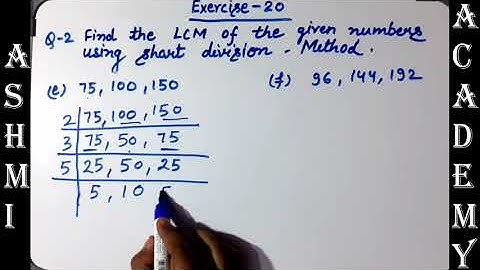 Exercise-20
Q-2 Find the LCM of the given numbers
using short division - Method.
(e) 75, 100, 150
(f) 96, 144, 192
2 | 75, 100, 150
3 | 75, 50, 75
5 | 25, 50, 25
5, 10 5
ASHMI
ACADEMY